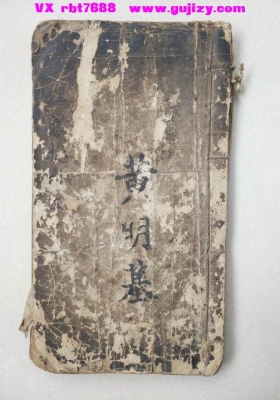 VX rbt7688  www.gujizy.com
黄明基